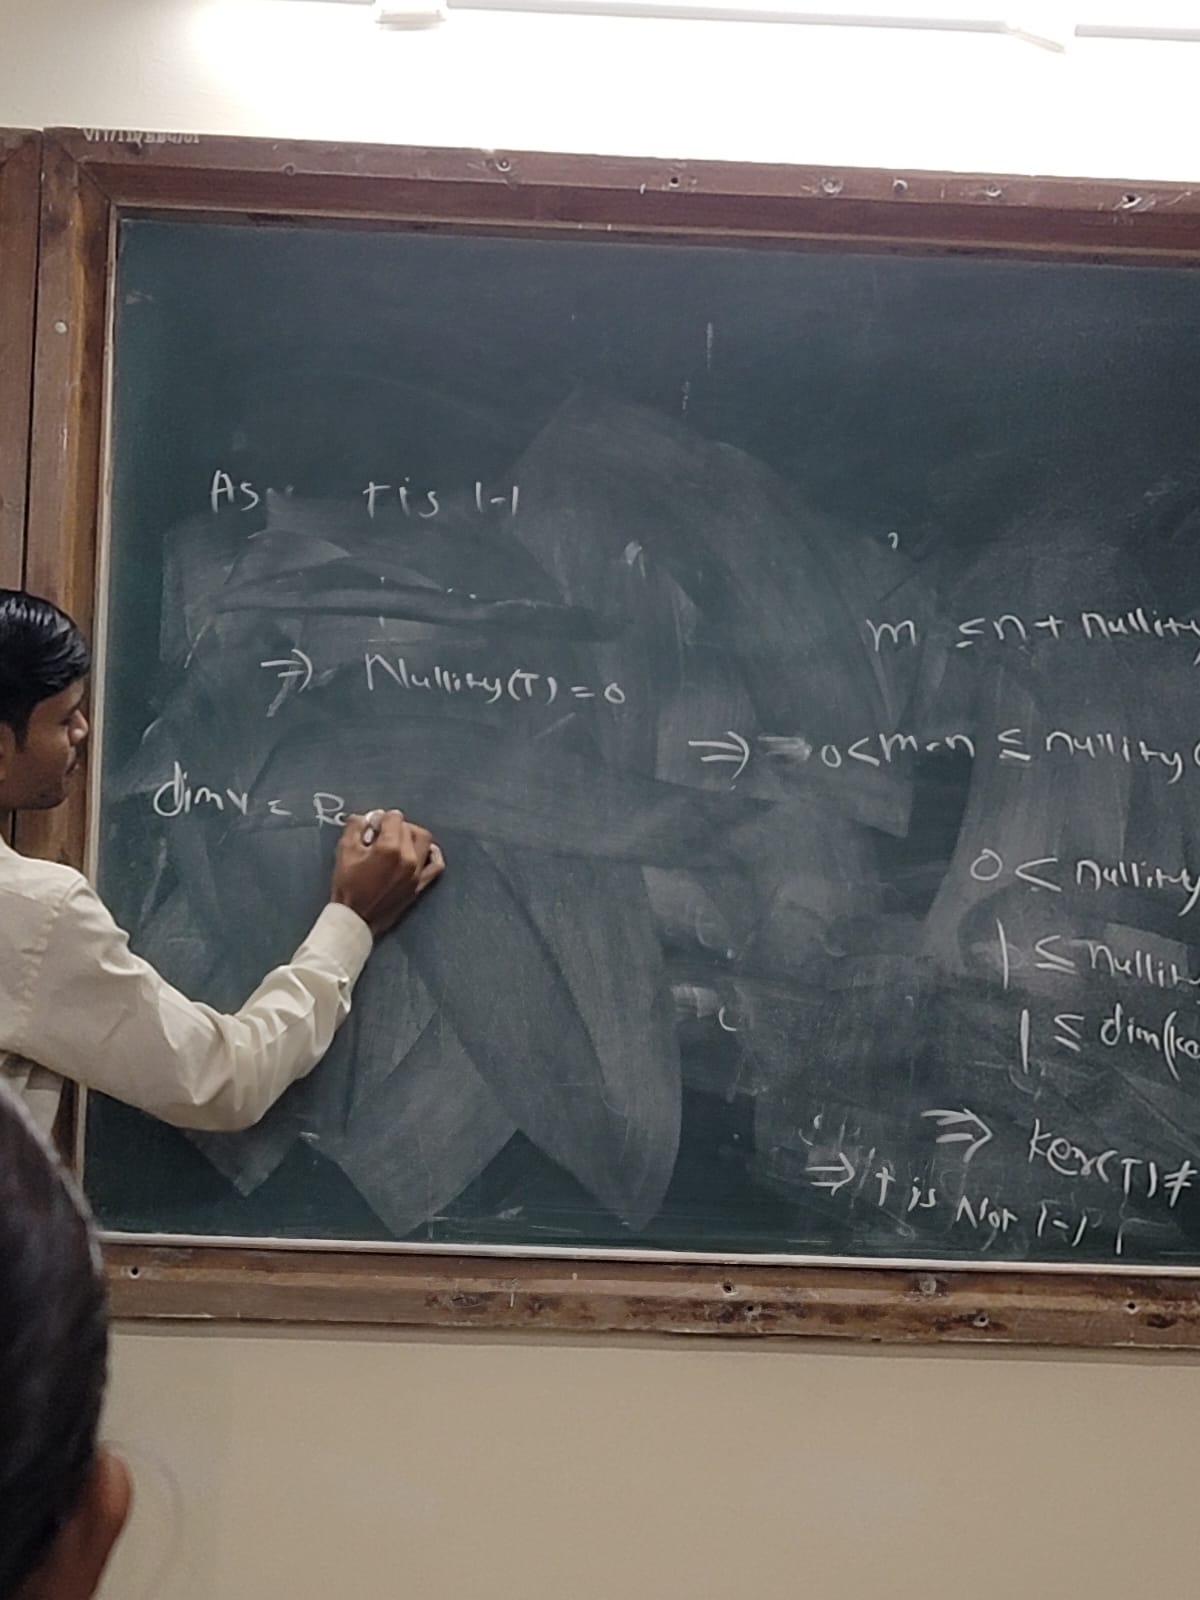 As T is 1-1
⇒ Nullity(T) = 0
dim V =
m ≤ n + nullity
⇒ 0 < m-n ≤ nullity(
0 < nullity
1 ≤ nullit
1 ≤ dim(ke
⇒ Ker(T) ≠
⇒ T is Not 1-1